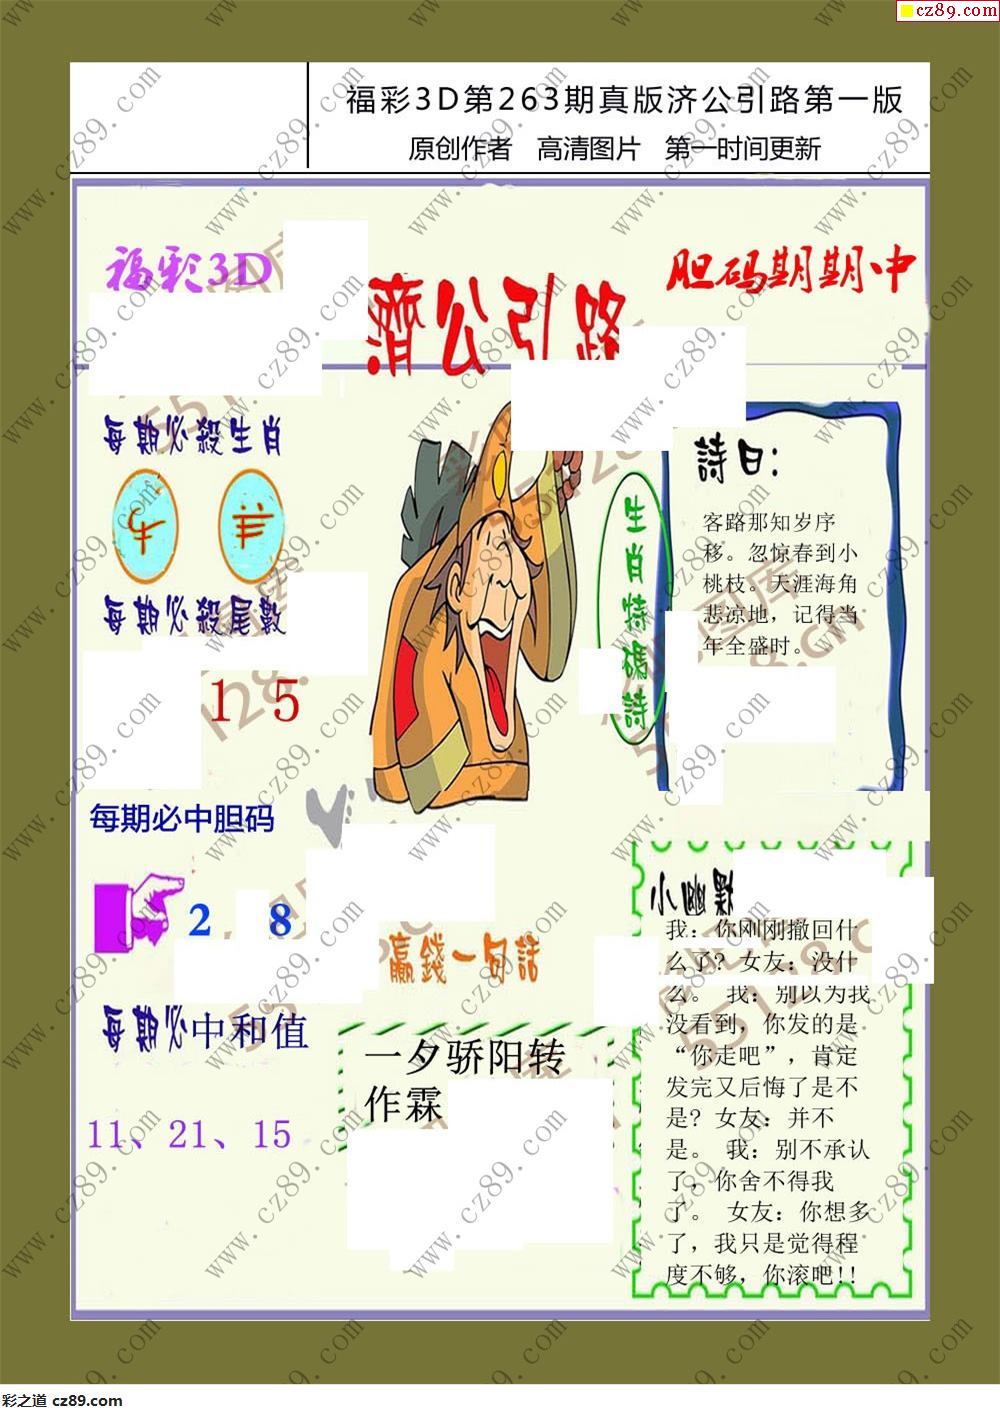 cz89.com
福彩3D第263期真版济公引路第一版
原创作者 高清图片 第一时间更新
福彩3D
濟公引路
胆码期期中
每期必殺生肖
牛 羊
每期必殺尾數
1 5
每期必中胆码
2 8
每期必中和值
11、21、15
生肖特碼詩
詩曰：
客路那知岁序
移。忽惊春到小
桃枝。天涯海角
悲凉地，记得当
年全盛时。
贏錢一句話
一夕骄阳转
作霖
小幽默
我：你刚刚撤回什
么了？女友：没什
么。 我：别以为我
没看到，你发的是
“你走吧”，肯定
发完又后悔了是不
是？女友：并不
是。 我：别不承认
了，你舍不得我
了。 女友：你想多
了，我只是觉得程
度不够，你滚吧!!
www.cz89.com
彩之道 cz89.com